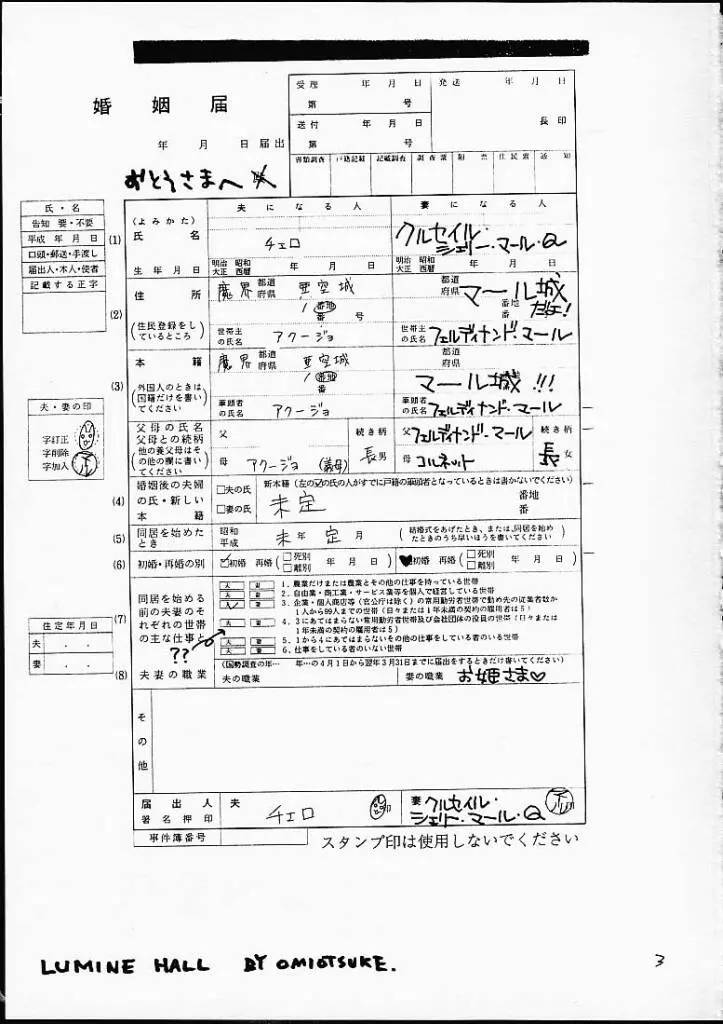 婚姻届
年 月 日 届出
おとうさまへ
受理 年 月 日
第 号
発送 年 月 日
送付 年 月 日
第 号
長印
書類調査 戸籍記載 記載調査 調査票 附票 住民票 通知
氏・名
告知 要・不要
平成 年 月 日
口頭・郵送・手渡し
届出人・本人・使者
記載する正字
夫になる人 妻になる人
(1)
(よみかた)
氏名
チェロ
クルセイル・
シェリー・マール・Q
生年月日
明治 昭和
大正 西暦
年 月 日
明治 昭和
大正 西暦
年 月 日
(2)
住所
(住民登録をし
ているところ)
魔界 都道府県 亜空城
1 番地
番 号
都道
府県 マール城
番地
番 号 だよ!
世帯主
の氏名 アクージョ
世帯主
の氏名 フェルディナンド・マール
(3)
本籍
(外国人のときは
国籍だけを書い
てください)
魔界 都道府県 亜空城
1 番地
番
都道
府県
マール城!!!
筆頭者
の氏名 アクージョ
筆頭者
の氏名 フェルディナンド・マール
夫・妻の印
字訂正
字削除
字加入
父母の氏名
父母との続柄
(他の養父母はそ
の他の欄に書い
てください)
父 続き柄
母 アクージョ (義母) 長男
父 フェルディナンド・マール 続き柄
母 コルネット 長女
(4)
婚姻後の夫婦
の氏・新しい
本籍
□夫の氏
□妻の氏
新本籍(左の☑の氏の人がすでに戸籍の筆頭者となっているときは書かないでください)
未定
番地
番
(5)
同居を始めた
とき
昭和
平成 未年 定月
(結婚式をあげたとき、または、同居を始め
たときのうち早いほうを書いてください)
(6)
初婚・再婚の別
☑初婚 再婚 (□死別 □離別 年 月 日)
♥初婚 再婚 (□死別 □離別 年 月 日)
(7)
同居を始める
前の夫妻のそ
れぞれの世帯
の主な仕事と
??
夫 妻 1.農業だけまたは農業とその他の仕事を持っている世帯
夫 妻 2.自由業・商工業・サービス業等を個人で経営している世帯
夫 妻 3.企業・個人商店等(官公庁は除く)の常用勤労者世帯で勤め先の従業者数が
1人から99人までの世帯(日々または1年未満の契約の雇用者は5)
夫 妻 4.3にあてはまらない常用勤労者世帯及び会社団体の役員の世帯(日々または
1年未満の契約の雇用者は5)
夫 妻 5.1から4にあてはまらないその他の仕事をしている者のいる世帯
夫 妻 6.仕事をしている者のいない世帯
住定年月日
夫 . .
妻 . .
(8)
夫妻の職業
(国勢調査の年… 年…の4月1日から翌年3月31日までに届出をするときだけ書いてください)
夫の職業
妻の職業 お姫さま♡
その他
届出人
署名押印
夫 チェロ 印
妻 クルセイル・
シェリー・マール・Q 印
事件簿番号
スタンプ印は使用しないでください
LUMINE HALL BY OMIOTSUKE.
3